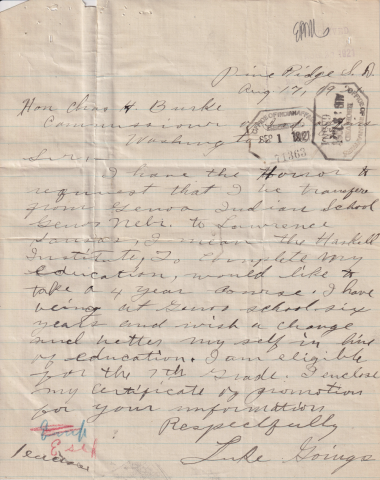 Pine Ridge S. D.
Aug 17, 19
Hon Chas H. Burke
Commissioner
Washington
SEP 1 1921
71363
AUG
Sir:—
I have the Horror to
request that I be transfer
from Genoa Indian School
Genoa Nebr. to Lawrence
Kansas, I mean the Haskell
Institute, To complete my
education, would like to
take a 4 year course. I have
being at Genoa school six
years and wish a change
and better my self in line
of education. I am eligible
for the 7th Grade. I inclose
my certificate of promotion
for your information
Respectfully
Luke Goings
1 enclose